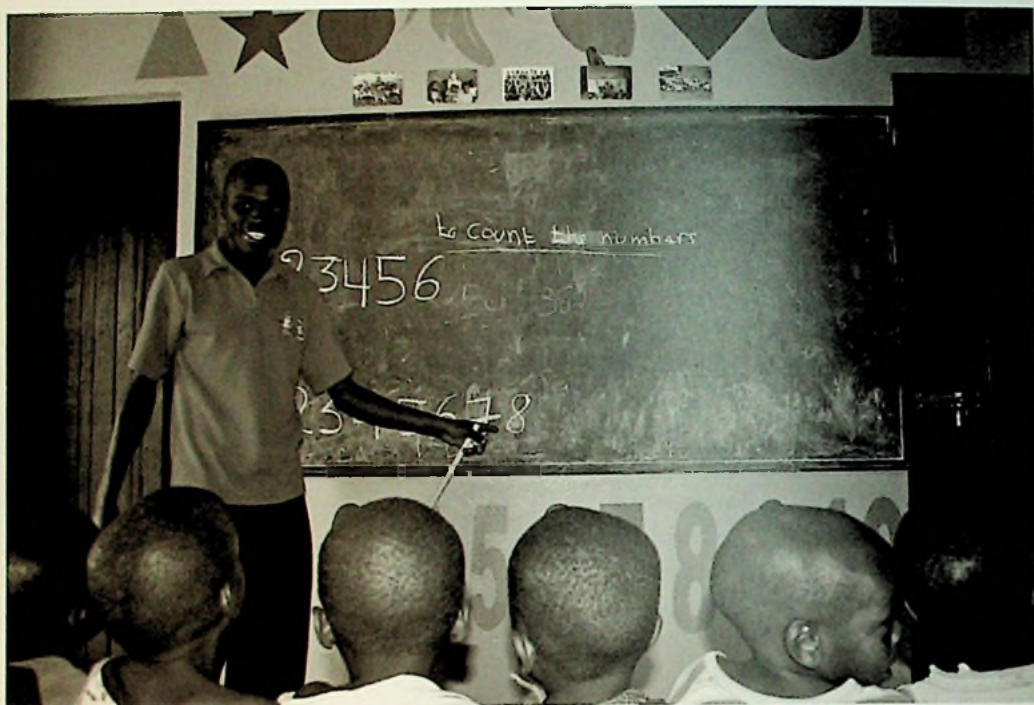 to count the numbers
23456
2345678
5
8
10